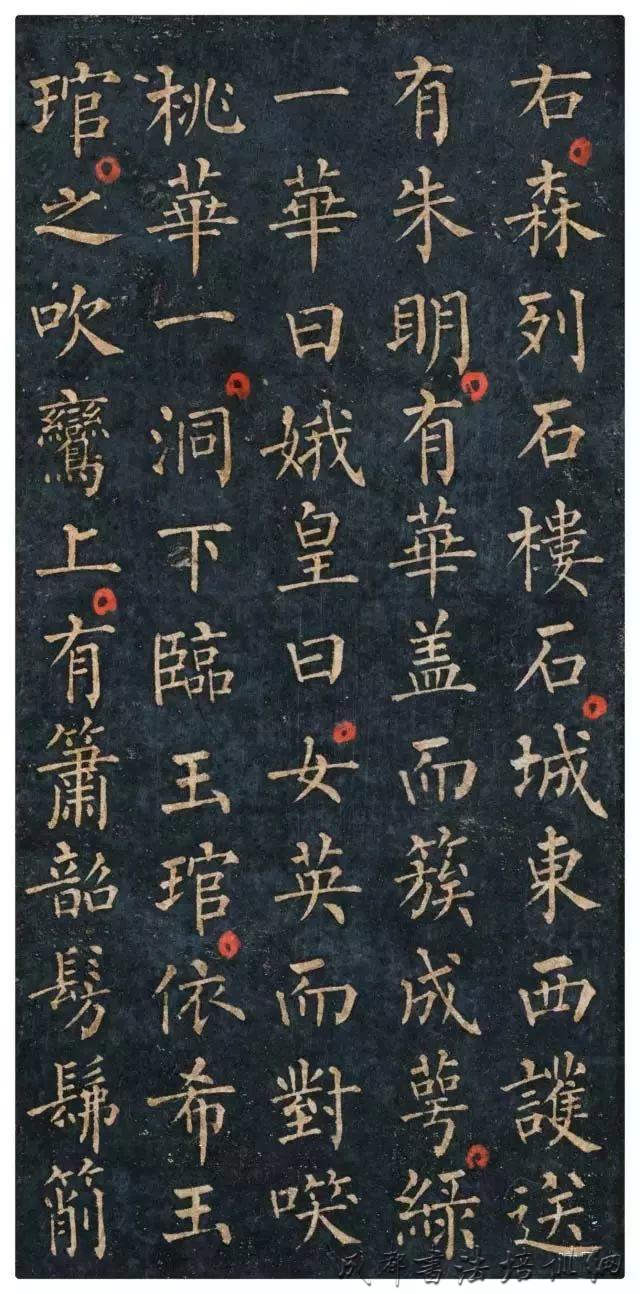 右森列石樓石城東西護送
有朱明有華盖而簇成萼綠
一華曰娥皇曰女英而對㗛
桃華一洞下臨玉琯依希玉
琯之吹鸞上有簫韶髣髴箾
成都書法培训网